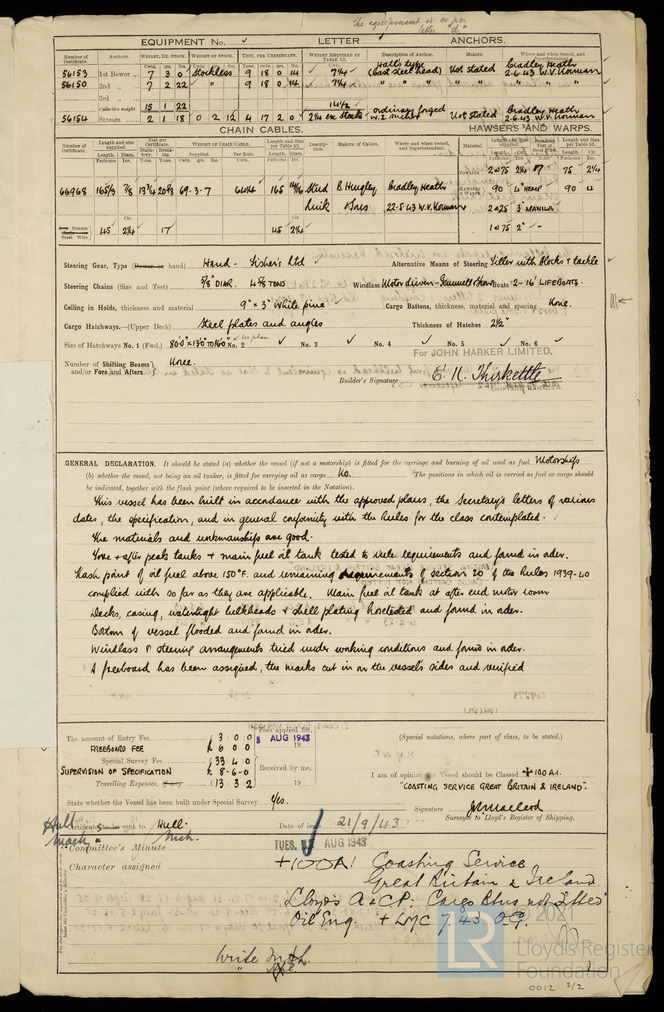 The equipment is as per
letter "d"
EQUIPMENT No. LETTER ANCHORS.
Number of Certificate. Anchors. Weight, Ex. Stock. Weight of Stock. Test, per Certificate. Weight Required by Table 53. Description of Anchor. Makers. Where and when tested, and Superintendent.
56153 1st Bower 7 3 0 Stockless 9 18 0 14 7¼ Halls type (cast steel head) Not stated Cradley Heath 2-6-43 W.V. Norman
56150 2nd " 7 2 22 " 9 18 0 14 7¼ " " " " " "
3rd "
Collective weight 15 1 22 14½
56154 Stream 2 1 18 0 2 12 4 17 2 0 2¼ ex Stock ordinary forged Not stated Cradley Heath 2-6-43 W.V. Norman
CHAIN CABLES. HAWSERS AND WARPS.
Number of Certificate. Length and size supplied. Test per Certificate. Weight of Chain Cable. Length and Size per Table 53. Description. Makers of Cables. Where and when tested, and Superintendent. Material.
66968 165/3 7/8 69.3.7 165 Stud B. Hingley Cradley Heath
link Sons 22-5-43 W.V. Norman
2 @ 75 2¼ 7 75 2¼
90 4" HEMP 90 4
2 @ 25 3" MANILA
1 @ 75 2" "
Stream Steel Wire 45 2¼ 17 45 2¼
Steering Gear, Type (Power or hand) Hand - Fisher's Ltd Alternative Means of Steering Tiller with Blocks & tackle
Steering Chains (Size and Test) 5/8" DIAR. TONS Windlass Motor driven Boats 2 - 16' LIFEBOATS.
Ceiling in Holds, thickness and material 9" × 3" White pine Cargo Battens, thickness, material and spacing None.
Cargo Hatchways.—(Upper Deck) Steel plates and angles Thickness of Hatches 2½"
Size of Hatchways No. 1 (Fwd.) No. 2 No. 3 No. 4 No. 5 No. 6
Number of Shifting Beams and/or Fore and Afters None.
For JOHN HARKER LIMITED.
Builder's Signature E. N. Thirkettle
SHIPYARD MANAGER.
GENERAL DECLARATION. It should be stated (a) whether the vessel (if not a motorship) is fitted for the carriage and burning of oil used as fuel Motorship
(b) whether the vessel, not being an oil tanker, is fitted for carrying oil as cargo No. The positions in which oil is carried as fuel or cargo should
be indicated, together with the flash point (where required to be inserted in the Notation).
This vessel has been built in accordance with the approved plans, the Secretary's letters of various
dates, the specification, and in general conformity with the Rules for the class contemplated.
The materials and workmanship are good.
Fore & after peaks tanks & main fuel oil tank tested to rule requirements and found in order.
Flash point of oil fuel above 150°F. and remaining requirements of section 20 of the Rules 1939-40
complied with so far as they are applicable. Main fuel oil tank at after end motor room
Decks, casing, watertight bulkheads & shell plating hosetested and found in order.
Bottom of vessel flooded and found in order.
Windlass & steering arrangements tried under working conditions and found in order.
A freeboard has been assigned, the marks cut in on the vessel's sides and verified
The amount of Entry Fee £ 3 : 0 : 0 Fees applied for,
FREEBOARD FEE £ 6 0 0 5 AUG 1943
Special Survey Fee £ 33 4 0 Received by me,
SUPERVISION OF SPECIFICATION £ 8 - 6 - 0
Travelling Expenses £ 13 3 2 19
(Special notations, where part of class, to be stated.)
I am of opinion the Vessel should be Classed +100A1.
"COASTING SERVICE GREAT BRITAIN & IRELAND".
State whether the Vessel has been built under Special Survey Yes.
Signature
Surveyor to Lloyd's Register of Shipping.
Certificate to be sent to Hull. Date of issue 21/9/43
Committee's Minute TUES. AUG 1943
Character assigned +100A1 Coasting Service
Great Britain & Ireland
Lloyds A & CP. Cargo Btns not fitted
Oil Eng. + LMC 7.43 O.G.
Write
© 2021
LR
Lloyd's Register
Foundation
0012 2/2